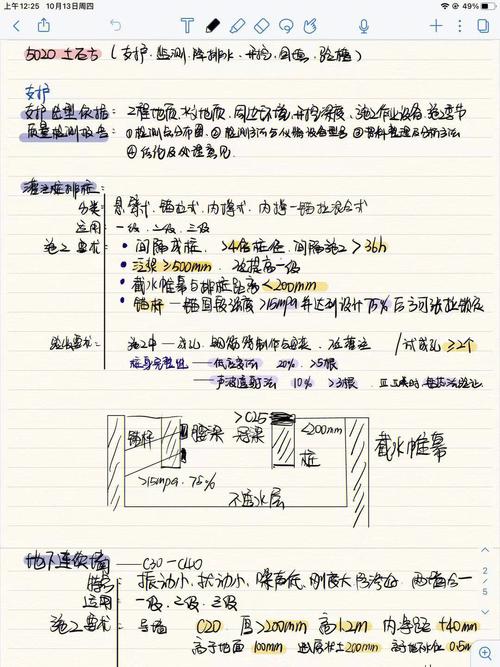 上午12:25 10月13日周四
49%
5020 土石方（支护、监测、降排水、开挖、回填、验槽）
支护
支护选型依据：工程地质、水文地质、周边环境、开挖深度、施工作业设备、施工季节
质量检测报告：①检测点分布图 ②检测方法与仪器设备型号 ③资料整理及分析方法
④结论及处理意见
灌注桩排桩：
分类 悬臂式、锚拉式、内撑式、内撑-锚拉混合式
适用 一级、二级、三级
施工要求 • 间隔成桩 >4倍桩径 间隔施工 >36h
• 泛浆≥500mm、 提高一级
• 截水帷幕与排桩距离 <200mm
• 锚杆—锚固段强度 >15mpa 并达到设计 75% 后方可张拉锁定
验收要求： 施工中—成孔、钢筋笼制作与安装、 灌注 /试成孔 ≥2个
桩身完整性 ——低应变法 20% >5根
——声波透射法 10% >3根
锚杆 腰梁 >C25 冠梁 <200mm 桩 截水帷幕
>15mpa、75%
不透水层
地下连续墙 ——C30-C40
特点： 振动小、扰动小、噪声低、刚度大 两墙合一
适用： 一级、二级、三级
施工要求： 导墙 C20 厚>200mm 高1.2m 内净距 +40mm
高于地面 100mm 200mm 0.5m
2/5